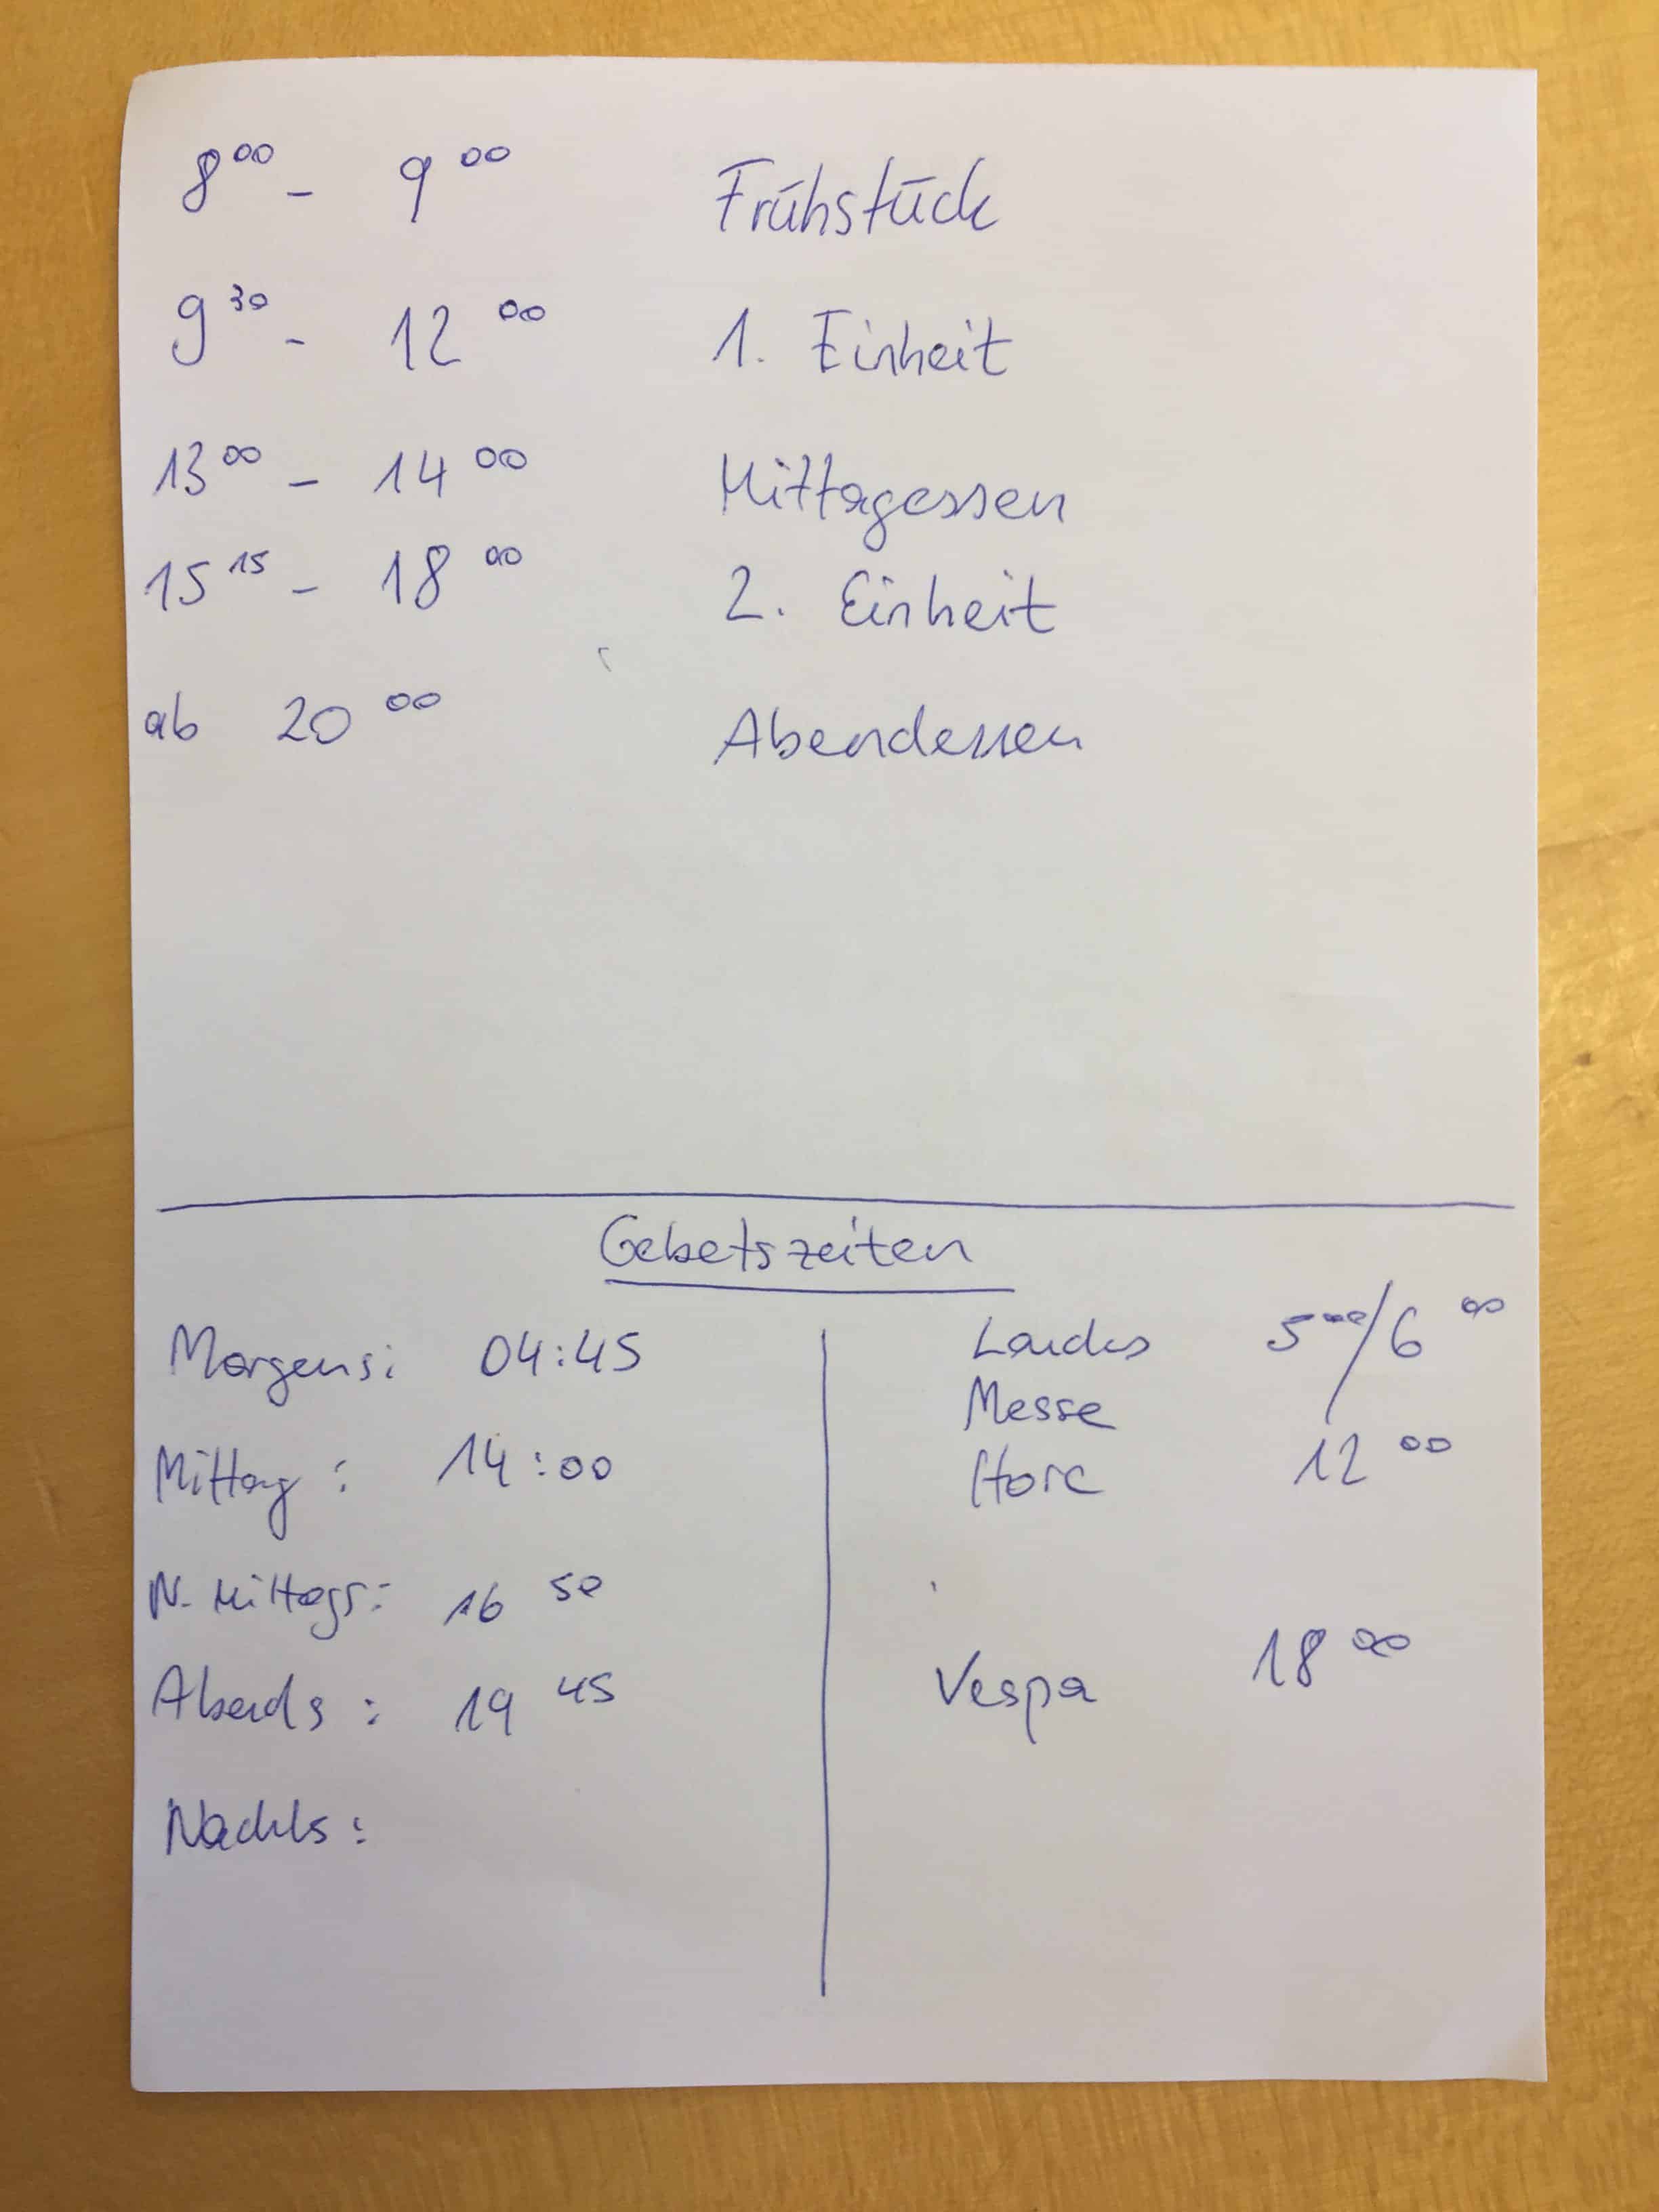 8 00 - 9 00 Frühstück
9 30 - 12 00 1. Einheit
13 00 - 14 00 Mittagessen
15 15 - 18 00 2. Einheit
ab 20 00 Abendessen
Gebetszeiten
Morgens: 04:45
Mittag: 14:00
N. Mittags: 16 50
Abends: 19 45
Nachts:
Laudes 5 00/6 00
Messe
Hore 12 00
Vesper 18 00